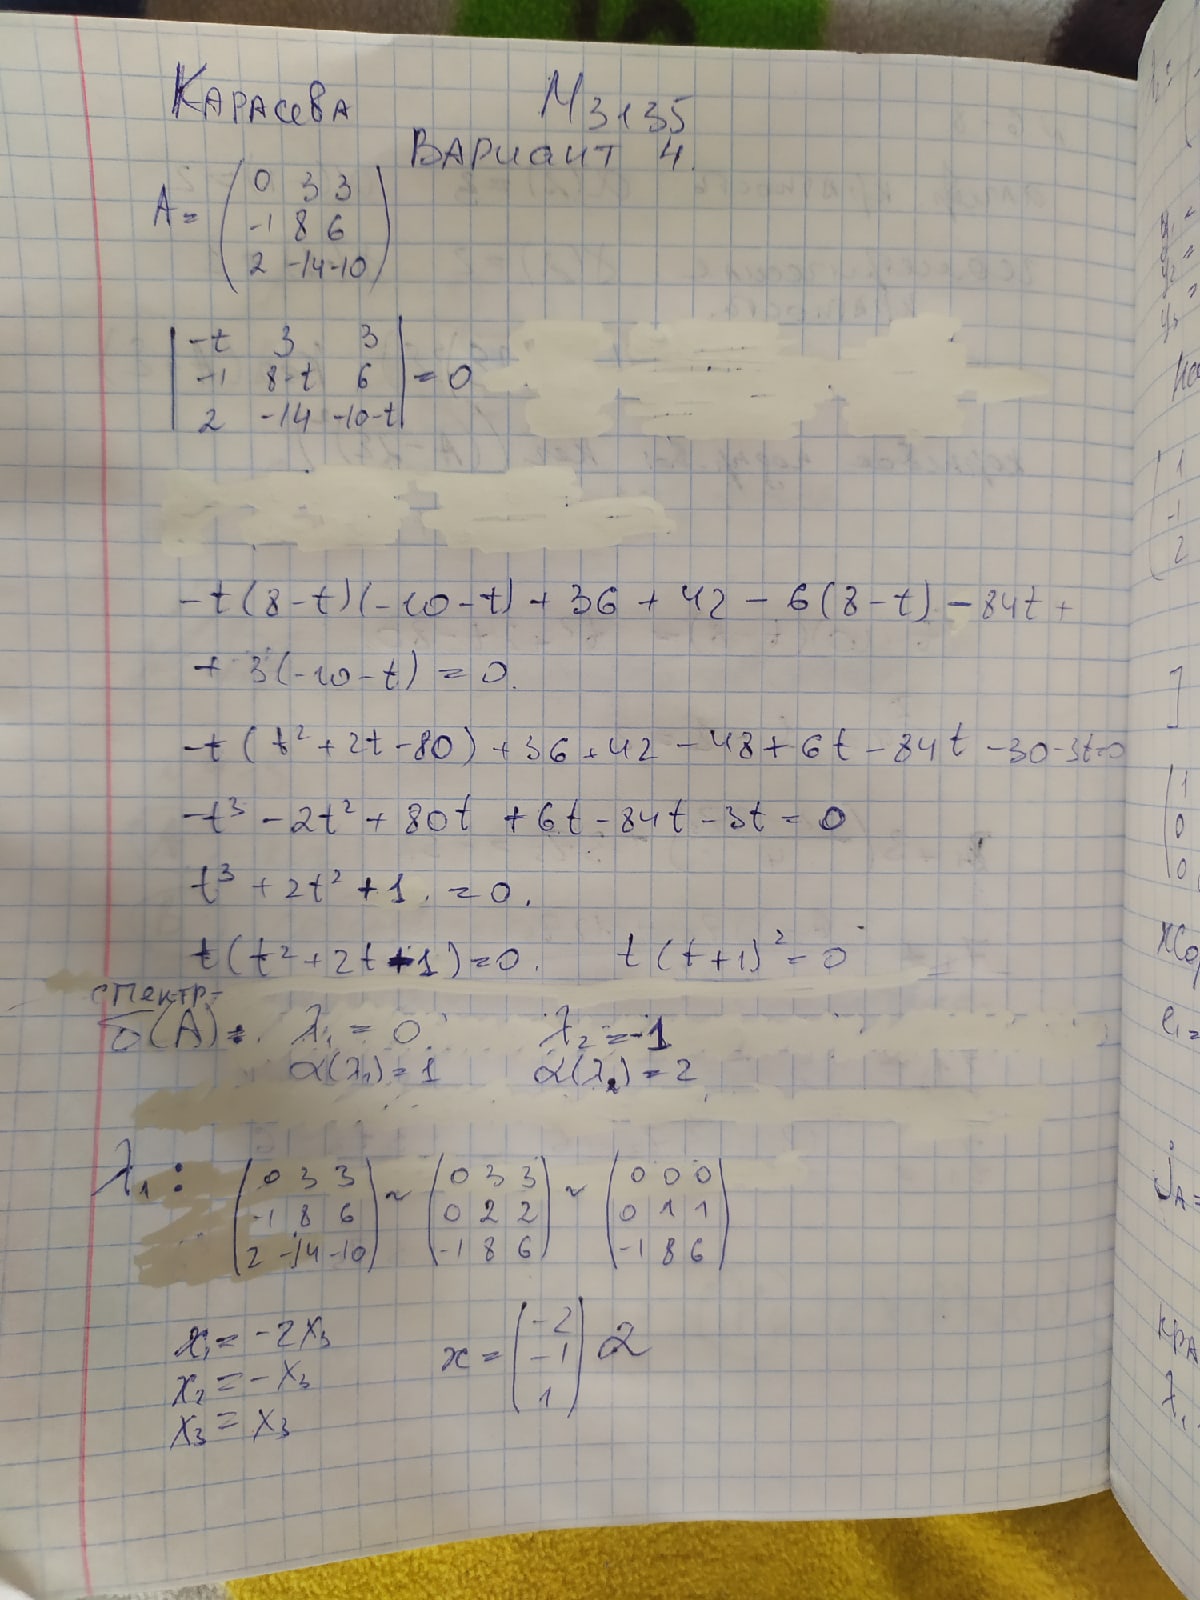 Карасева М3135
Вариант 4.
A = (0 3 3
-1 8 6
2 -14 -10)
|-t 3 3|
|-1 8-t 6| = 0
|2 -14 -10-t|
-t(8-t)(-10-t) + 36 + 42 - 6(8-t) - 84t +
+ 3(-10-t) = 0.
-t(t² + 2t - 80) + 36 + 42 - 48 + 6t - 84t - 30 - 3t = 0
-t³ - 2t² + 80t + 6t - 84t - 3t = 0
t³ + 2t² + 1. = 0.
t(t² + 2t + 1) = 0. t(t+1)² = 0
спектр -
σ(A) = λ₁ = 0. λ₂ = -1
α(λ₁) = 1 α(λ₂) = 2
λ₁: (0 3 3) ~ (0 3 3) ~ (0 0 0)
(-1 8 6) (0 2 2) (0 1 1)
(2 -14 -10) (-1 8 6) (-1 8 6)
x₁ = -2x₃
x₂ = -x₃
x₃ = x₃
x = (-2
-1
1) α